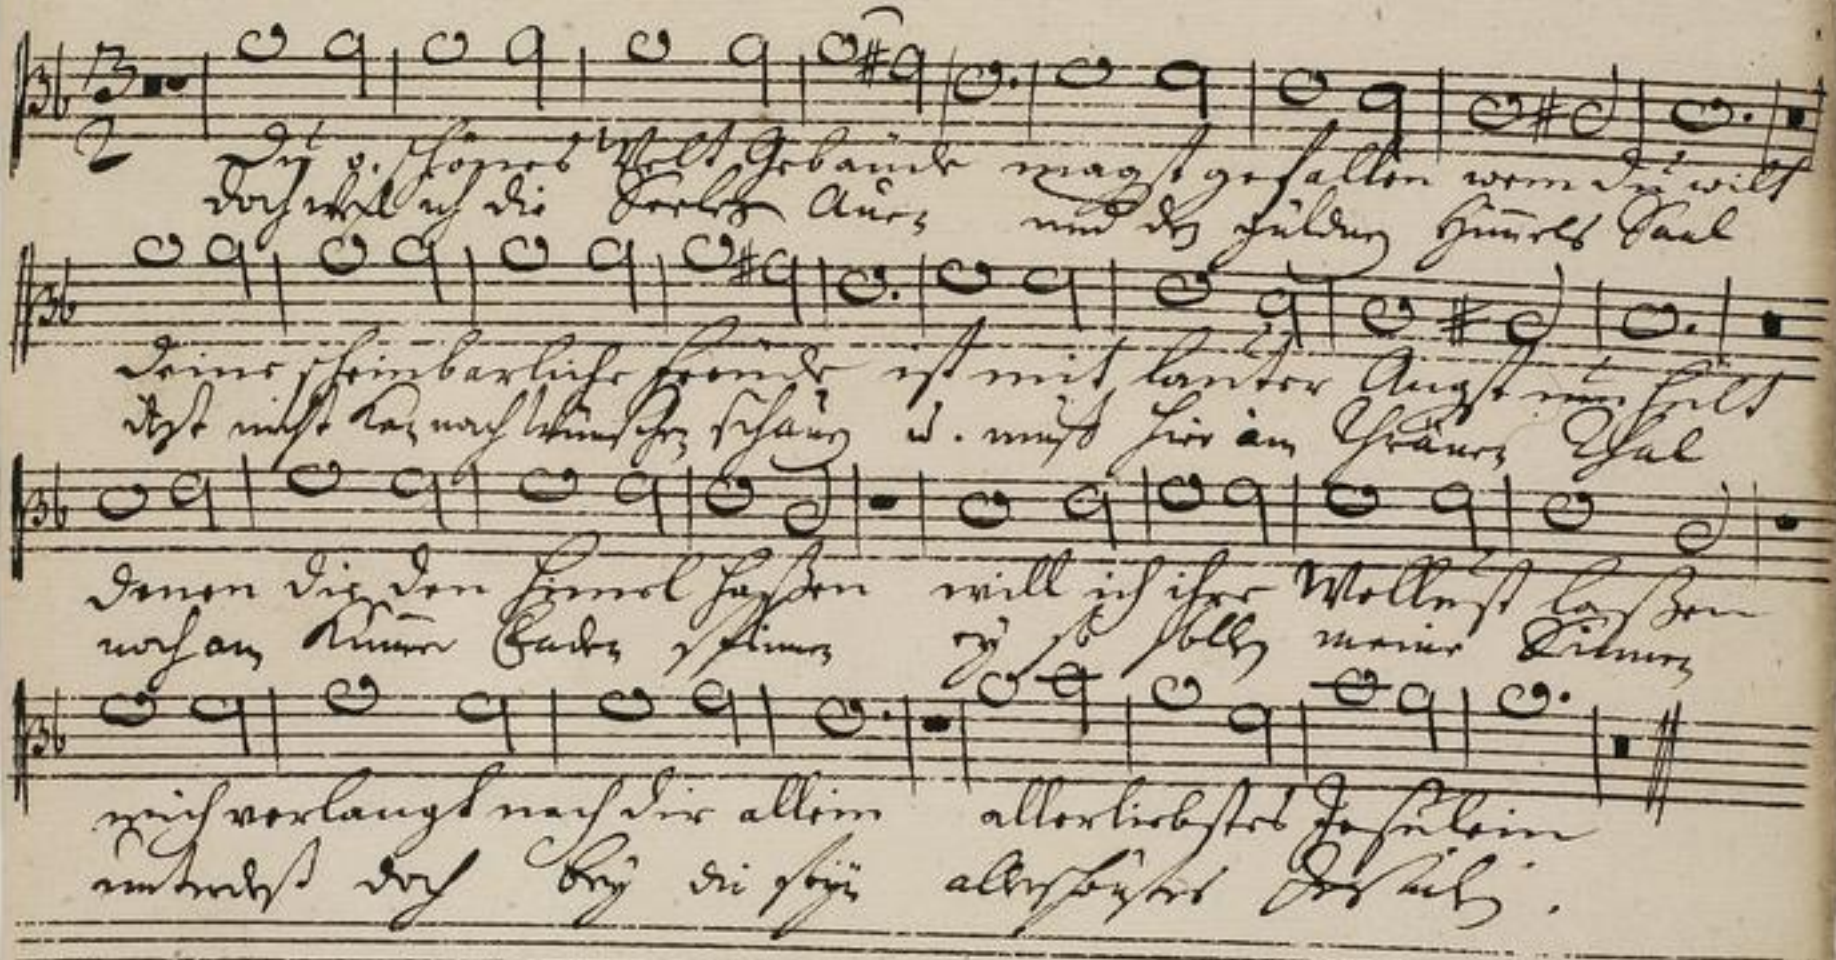 Du o. schönes Welt Gebäude magst gefallen wem du wilt
doch weil ich die Seelen Auen und den gülden Himels Saal
deine scheinbarliche Freude ist mit lauter Angst umhült
itzt nicht kan nach wünschen schauen u. muß hier am Thränen Thal
denen die den Himel haßen will ich ihre Wollust laßen
noch am Kumer Faden spinnen ey so sollen meine Sinnen
mich verlangt nach dir allein allerliebstes Jesulein
unterdeß doch bey dir seyn allerschönstes Jesulein.